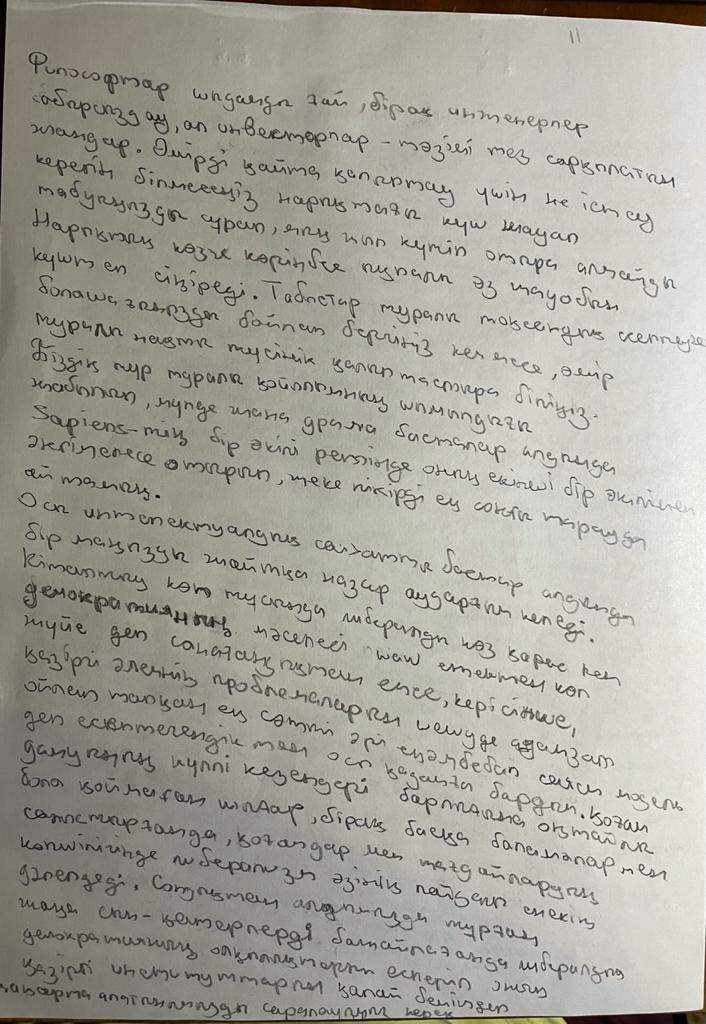 11
Философтар шыдамды хай, бірақ инженерлер
сабырсыздау, ал инвесторлар - төзімі тез сарқылатын
жандар. Өмірді қайта қалыптау үшін не істеу
керегін білмесеңіз нарықтағы күш жауап
табуыңызды сұрап, мың жыл күтіп отыра алмайды
Нарықтың көзге көрінбес ықпалы өз жауабын
күштеп сіңіреді. Табыстар туралы тоқсандық есептеуге
болашағыңызды байлап беріңіз немесе, өмір
туралы нақты түсінік қалыптастыра біліңіз.
Біздің түр туралы қойылымның шымылдығы
жабылып, мүлде жаңа драма басталар алдында
Sapiens-тің бір әкілі ретінде оның екінші бір өкілімен
әңгімелесе отырып, жеке пікірді ең соңғы тарауда
айтамын.
Осы интелектуалдық саяхатты бастар алдында
бір маңызды жайтқа назар аударғым келеді.
Кітаптың көп тұсында либералды көз қарас пен
демократияның мәселесі
жүйе деп санағандықтан емес, керісінше,
қазіргі әлемнің проблемаларын шешуде адамзат
ойлап тапқан ең сәтті әрі әмбебап саяси модель
деп есептегендіктен осы қадамға бардым. Қоғам
дамуының күллі кезеңдері барлығына оңтайлы
бола қоймаған шығар, бірақ басқа баламалар мен
салыстырғанда, қоғамдар мен жағдайлардың
көпшілігінде либерализм өзінің пайдалы екенін
дәлелдеді. Сондықтан алдымызда тұрған
жаңа сын-қатерлерді бағамдағанда либералдық
демократияның олқылықтарын ескеріп оның
қазіргі институттарын қалай бейімдеп
жаңарта алатынымызды саралауымыз керек